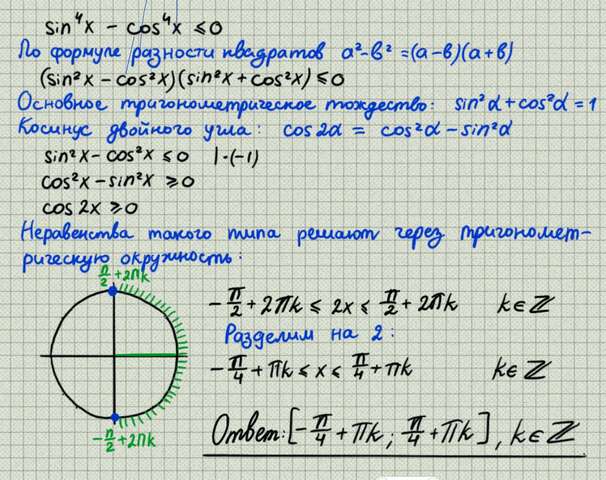 sin⁴x - cos⁴x ≤ 0
По формуле разности квадратов a²-b² = (a-b)(a+b)
(sin²x - cos²x)(sin²x + cos²x) ≤ 0
Основное тригонометрическое тождество: sin²α + cos²α = 1
Косинус двойного угла: cos2α = cos²α - sin²α
sin²x - cos²x ≤ 0 |·(-1)
cos²x - sin²x ≥ 0
cos 2x ≥ 0
Неравенства такого типа решают через тригономет-
рическую окружность:
π/2 + 2πk
-π/2 + 2πk ≤ 2x ≤ π/2 + 2πk k∈ℤ
Разделим на 2:
-π/4 + πk ≤ x ≤ π/4 + πk k∈ℤ
-π/2 + 2πk
Ответ: [-π/4 + πk ; π/4 + πk], k∈ℤ